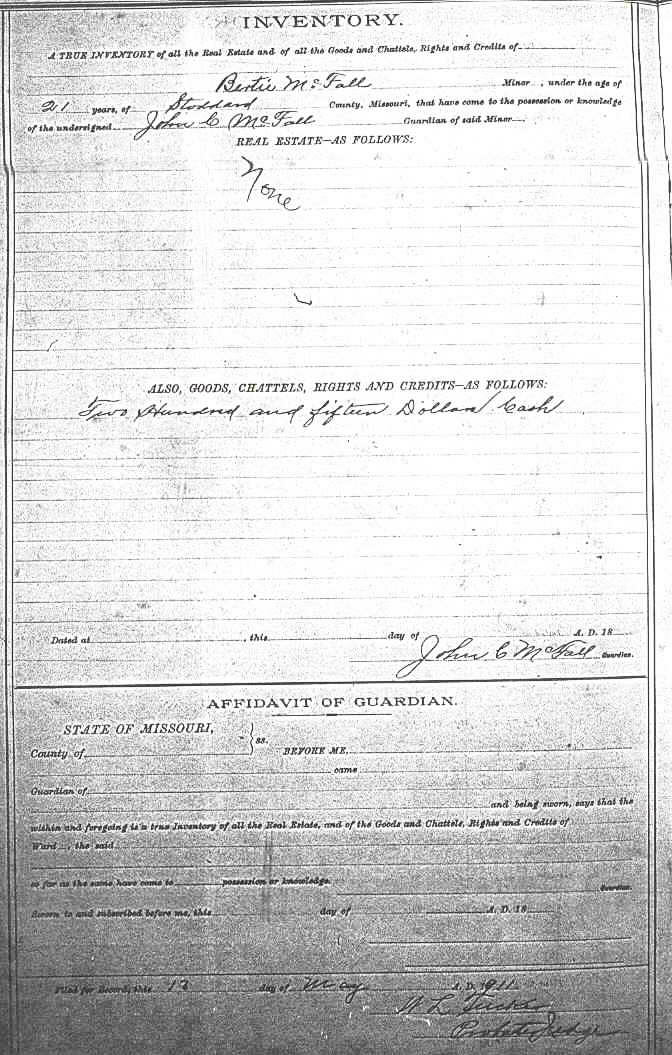 INVENTORY.
A TRUE INVENTORY of all the Real Estate and of all the Goods and Chattels, Rights and Credits of
Bertie McFall Minor , under the age of
21 years, of Stoddard County, Missouri, that have come to the possession or knowledge
of the undersigned John C McFall Guardian of said Minor
REAL ESTATE—AS FOLLOWS:
None
ALSO, GOODS, CHATTELS, RIGHTS AND CREDITS—AS FOLLOWS:
Two Hundred and fifteen Dollars Cash
Dated at , this day of A. D. 18
John C McFall Guardian.
AFFIDAVIT OF GUARDIAN.
STATE OF MISSOURI,
County of } ss. BEFORE ME,
came
Guardian of
and being sworn, says that the
within and foregoing is a true Inventory of all the Real Estate, and of the Goods and Chattels, Rights and Credits of
Ward , the said
so far as the same have come to possession or knowledge.
Guardian.
Sworn to and subscribed before me, this day of A. D. 18
Filed for Record, this day of May A. D. 1911
W L
Probate Judge